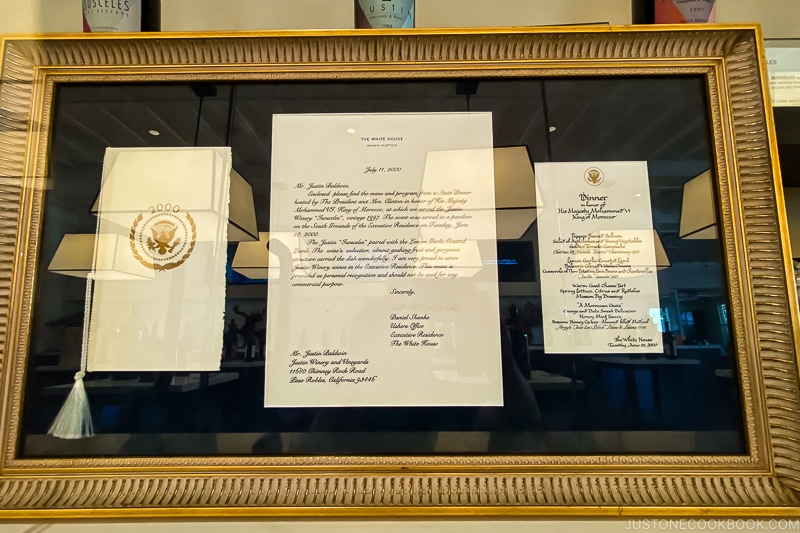 JUSTI
1994
1997
2000
THE WHITE HOUSE
WASHINGTON
July 11, 2000
Mr. Justin Baldwin,
Enclosed please find the menu and program from a State Dinner
hosted by The President and Mrs. Clinton in honor of His Majesty
Mohammed VI, King of Morocco, at which we served the Justin
Winery "Isosceles", vintage 1997. The event was served in a pavilion
on the South Grounds of the Executive Residence on Tuesday, June
20, 2000.
The Justin "Isosceles" paired with the Lemon Garlic Crusted
Lamb. The wine's seduction, almost pushing fruit and gorgeous
structure carried the dish wonderfully. I am very proud to serve
Justin Winery wines in the Executive Residence. This menu is
provided as personal recognition and should not be used for any
commercial purpose.
Sincerely,
Daniel Shanks
Ushers Office
Executive Residence
The White House
Mr. Justin Baldwin
Justin Winery and Vineyards
11680 Chimney Rock Road
Paso Robles, California 93446
Dinner
in honor of
His Majesty Mohammed VI
King of Morocco
Salmon
Young Vegetables
Tomato Gazpacho
Lemon Garlic Crusted Lamb
Warm Goat Cheese Tart
Spring Lettuce, Citrus and Radishes
Mission Fig Dressing
"A Moroccan Oasis"
Orange and Date Sorbet Delicacies
Honey Mint Sauce
Sesame Honey Cakes
The White House
Tuesday, June 20, 2000
JUSTONECOOKBOOK.COM